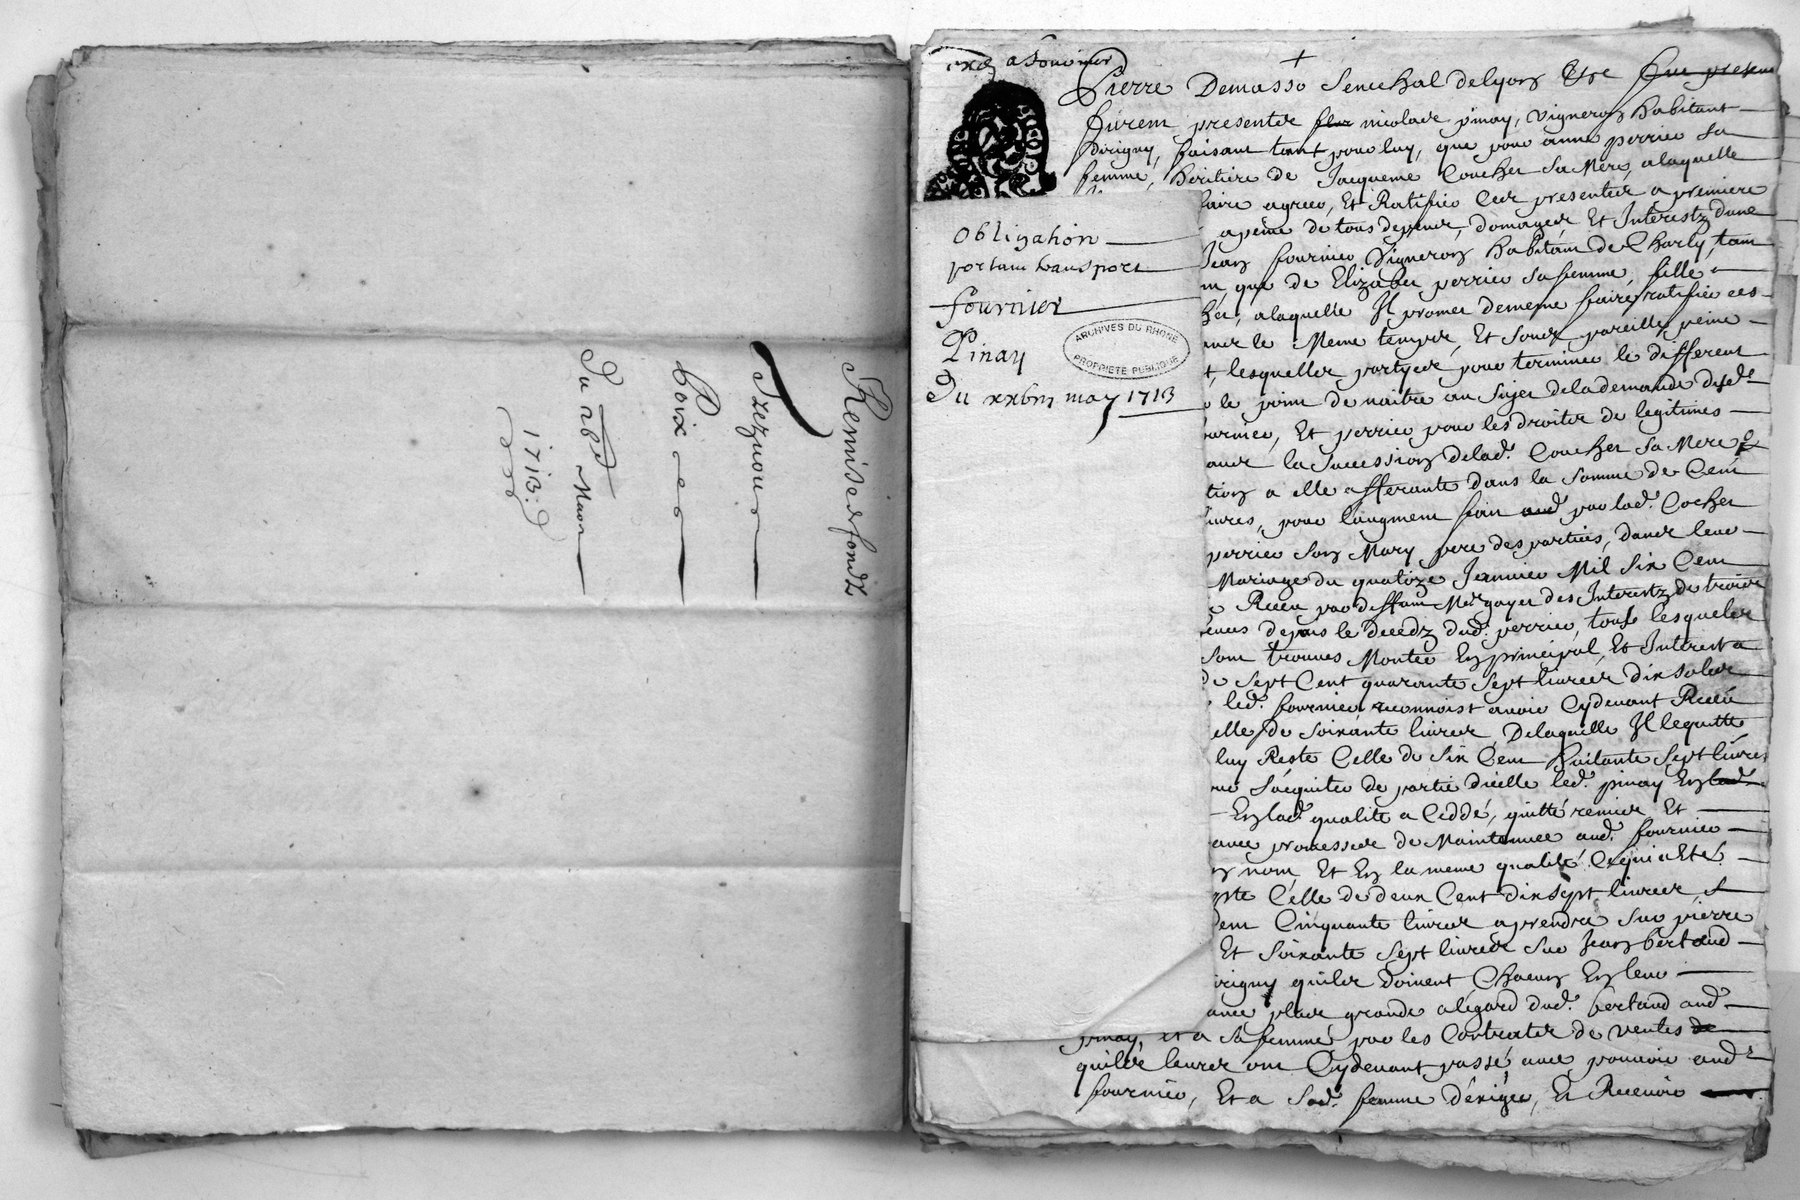 Remise de fondz
Trezvoux
Roix
Du 28e Mars
1713
exp a fournier
Pierre Demasso Senechal de Lyon
furent presentes nicolas pinay, vigneron habitant
dirigny, faisant tant pour luy, que pour anne perrier sa
femme, heritiere de Jacqueme Coucher sa Mere, a laquelle
faire agreer, Et Ratifier Ces presentes a premiere
a peine de tous depens, domages Et Interestz dune
Jean fournier Vigneron habitant de Charly, tant
que de Elizabet perrier sa femme, fille
alaquelle Il promet de meme faire ratiffier ces
le Meme temps, Et soubz pareille peine
lesquelles partyes pour terminer le different
le point de naitre au sujet de la demande
fournier, Et perrier pour les droits de legitimes
la succession de lad. Coucher sa Mere
a elle afferante dans la somme de Cent
livres, pour laugment fait par lad. Cocher
perrier son Mary pere des parties, dans leur
Mariage du quatoze Janvier Mil Six Cent
Receu par deffunt Me gayet des Interestz de trois
depuis le decedz dud. perrier, tous lesquels
sont trouves Monter En principal, Et Interest a
Sept Cent quarante Sept livres dix sols
led. fournier reconnoist avoir Cydevant Receu
elle de soixante livres Delaquelle Il lequitte
luy Reste Celle de Six Cent huitante Sept livres
Sacquiter de partie dicelle led. pinay En
Enlad. qualite a Ceddé, quitté remis Et
avec promesse de Maintenue aud. fournier
nom, Et En la meme qualité Ce qui a Eté
Celle de deux Cent dix sept livres
Cent Cinquante livres a prendre sur pierre
Et Soixante Sept livres sur Jean bertaud
irigny quils doivent Chacun En leur
place grande alegard dud. bertaud aud.
pinay, et a sa femme par les Contrats de ventes
quils leurs ont Cydevant passé avec pouvoir aud.
fournier, Et a sad. femme d'exiger, Et Recevoir
obligation
portant transport
fournier
Pinay
Du xxbm may 1713
ARCHIVES DU RHONE
PROPRIETE PUBLIQUE